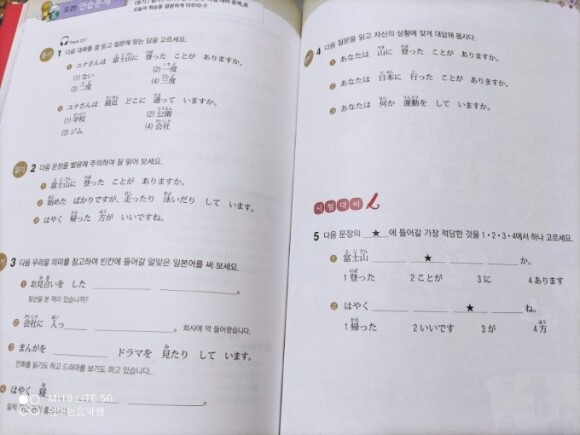 도전! 연습문제
Track 137
듣기
1 다음 대화를 잘 듣고 질문에 맞는 답을 고르세요.
① ユナさんは 富士山に 登った ことが ありますか。
(1) ない (2) 一度
(3) 二度 (4) 三度
② ユナさんは 最近 どこに 通って いますか。
(1) 学校 (2) 公園
(3) ジム (4) 会社
읽기
2 다음 문장을 발음에 주의하며 잘 읽어 보세요.
① 富士山に 登った ことが ありますか。
② 始めた ばかりですが、走ったり 泳いだり して います。
③ はやく 帰った 方が いいですね。
3 다음 우리말 의미를 참고하여 빈칸에 들어갈 알맞은 일본어를 써 보세요.
① お見合いを した
맞선을 본 적이 있습니까?
② 会社に 入っ 。 회사에 막 들어왔습니다.
③ まんがを ドラマを 見たり して います。
만화를 읽기도 하고 드라마를 보기도 하고 있습니다.
はやく 寝
MI 10 LITE 5G
4 다음 질문을 읽고 자신의 상황에 맞게 대답해 봅시다.
① あなたは 山に 登った ことが ありますか。
② あなたは 日本に 行った ことが ありますか。
③ あなたは 何か 運動を して いますか。
시험대비
5 다음 문장의 ★ 에 들어갈 가장 적당한 것을 1·2·3·4에서 하나 고르세요.
① 富士山 ★ か。
1 登った 2 ことが 3 に 4 あります
② はやく ★ ね。
1 帰った 2 いいです 3 が 4 方